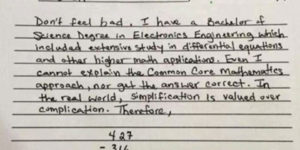 Don't feel bad. I have a Bachelor of
Science Degree in Electronics Engineering which
included extensive study in differential equations
and other higher math applications. Even I
cannot explain the Common Core Mathematics
approach, nor get the answer correct. In
the real world, simplification is valued over
complication. Therefore,
427
- 316